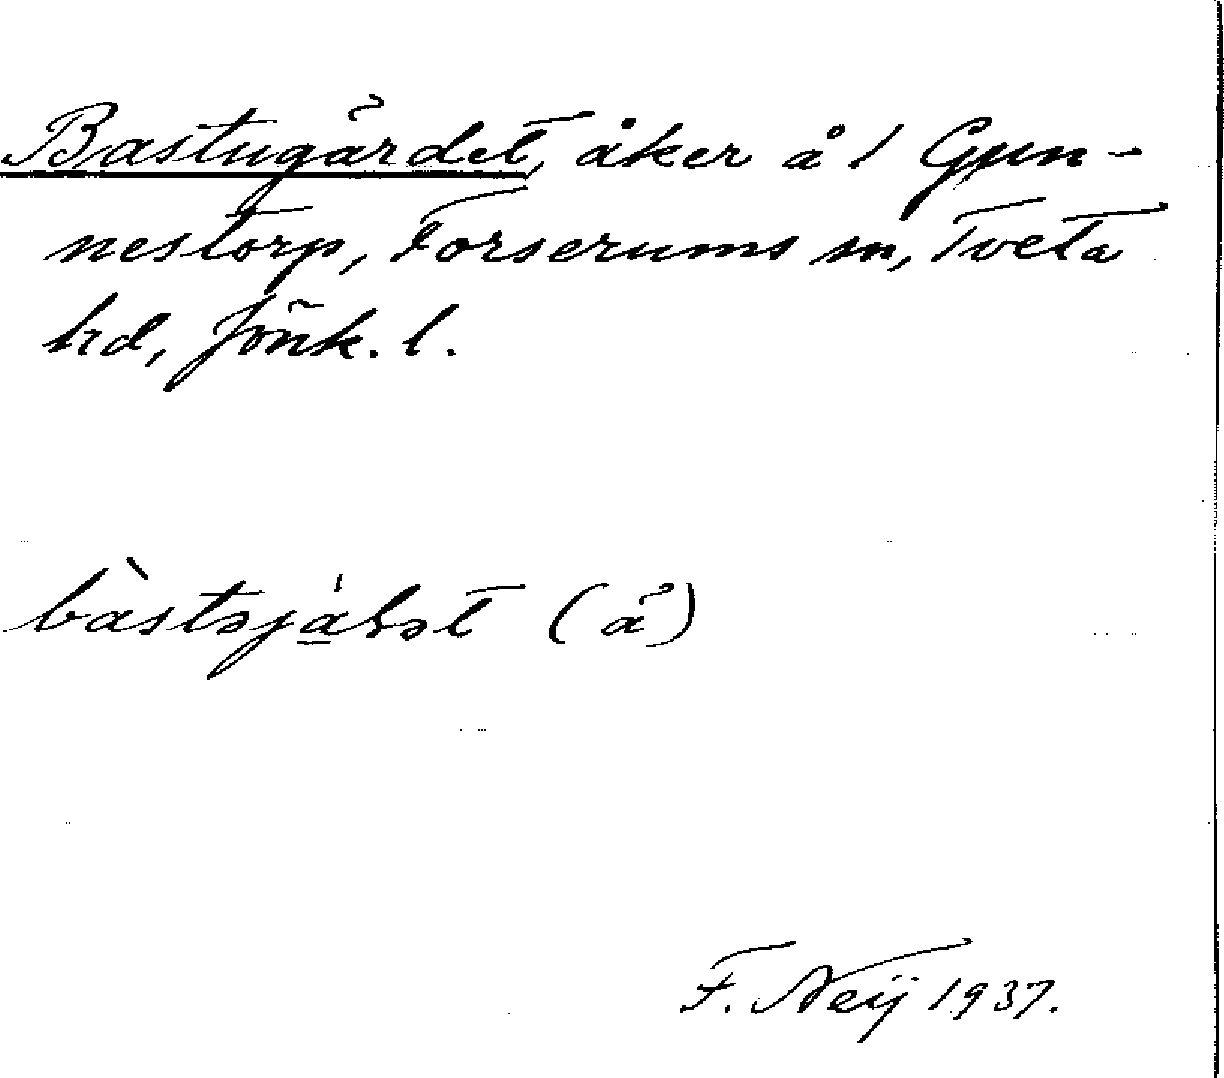 Bastugärdet, åker å 1 Gun-
nestorp, Forserums sn, Tveta
hd, Jönk. l.
(ä)
F. Neij 1937.